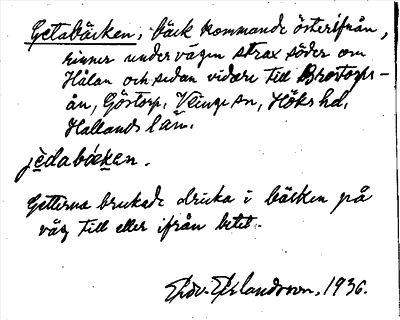 Getabäcken, bäck kommande österifrån,
rinner under vägen strax söder om
Hålan och sedan vidare till Brostorps-
ån, Göstorp, Veinge sn, Höks hd,
Hallands län.
jedabäken.
Getterna brukade dricka i bäcken på
väg till eller ifrån betet.
1936.